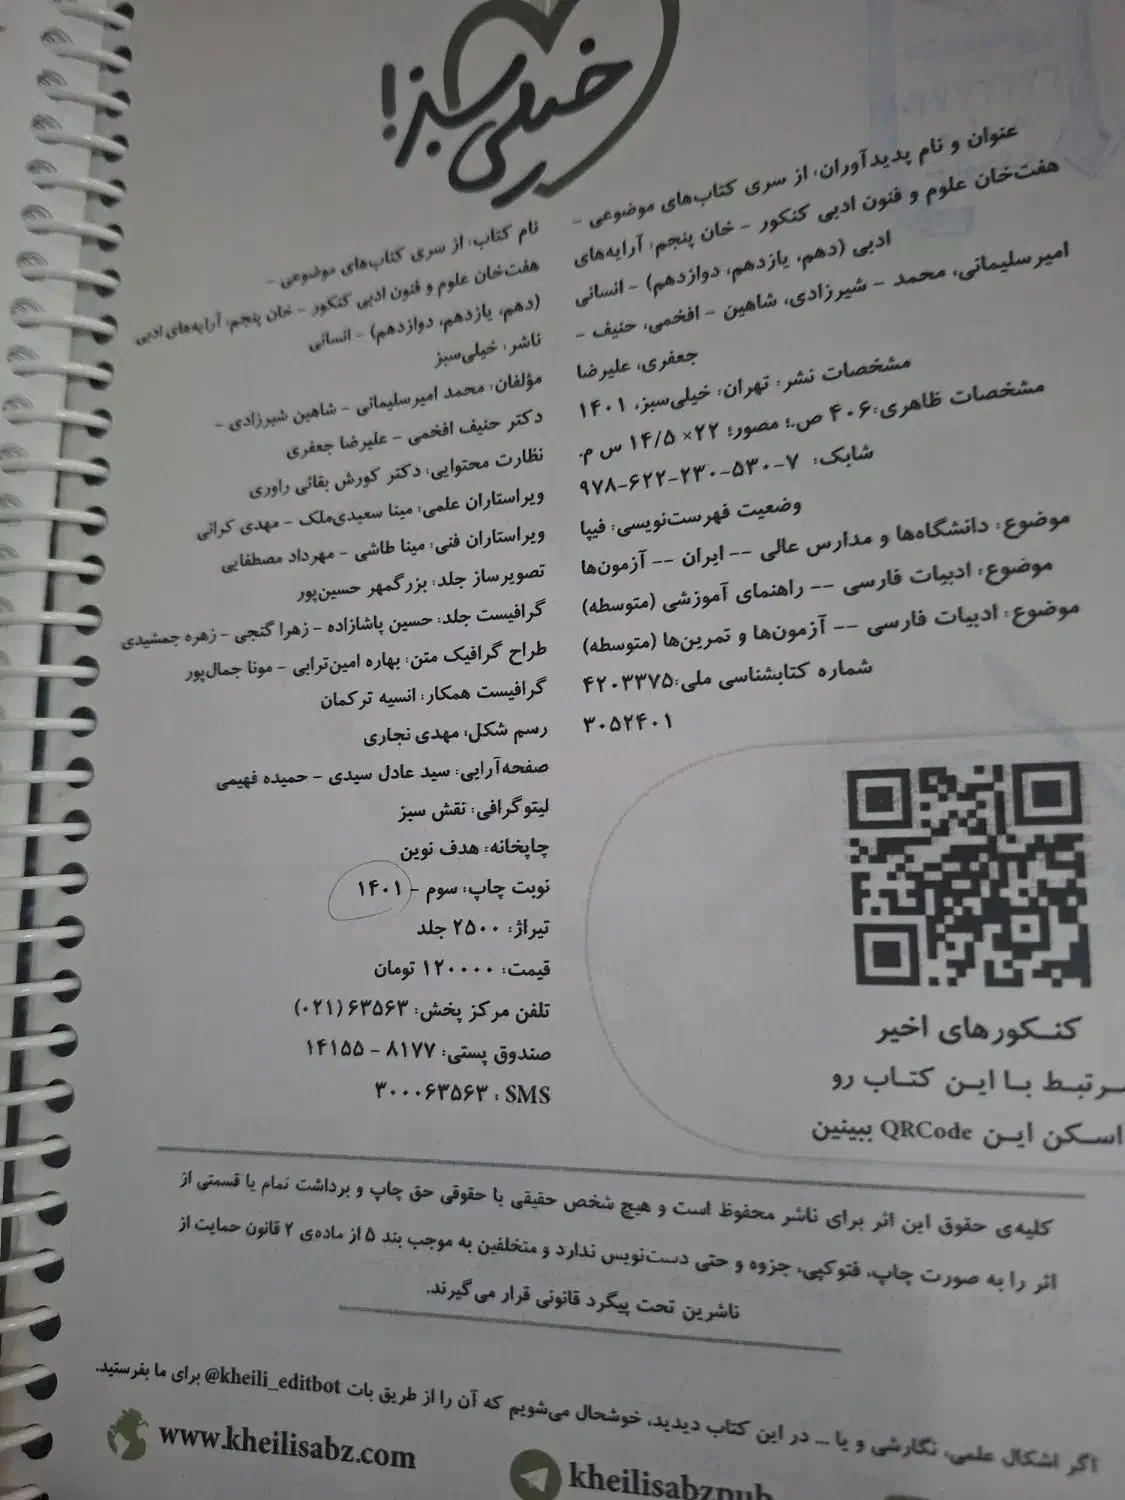 خیلی سبز!
عنوان و نام پدیدآوران: از سری کتاب‌های موضوعی -
هفت‌خان علوم و فنون ادبی کنکور - خان پنجم: آرایه‌های
ادبی (دهم، یازدهم، دوازدهم) - انسانی
امیرسلیمانی، محمد - شیرزادی، شاهین - افخمی، حنیف -
جعفری، علیرضا
مشخصات نشر: تهران: خیلی‌سبز، ۱۴۰۱
مشخصات ظاهری: ۴۰۶ ص.؛ مصور؛ ۲۲× ۱۴/۵ س م.
شابک: ۷-۵۳۰-۲۳۰-۶۲۲-۹۷۸
وضعیت فهرست‌نویسی: فیپا
موضوع: دانشگاه‌ها و مدارس عالی -- ایران -- آزمون‌ها
موضوع: ادبیات فارسی -- راهنمای آموزشی (متوسطه)
موضوع: ادبیات فارسی -- آزمون‌ها و تمرین‌ها (متوسطه)
شماره کتابشناسی ملی: ۴۲۰۳۳۷۵
۳۰۵۲۴۰۱
نام کتاب: از سری کتاب‌های موضوعی -
هفت‌خان علوم و فنون ادبی کنکور - خان پنجم: آرایه‌های ادبی
(دهم، یازدهم، دوازدهم) - انسانی
ناشر: خیلی‌سبز
مؤلفان: محمد امیرسلیمانی - شاهین شیرزادی -
دکتر حنیف افخمی - علیرضا جعفری
نظارت محتوایی: دکتر کورش بقائی راوری
ویراستاران علمی: مینا سعیدی‌ملک - مهدی کرانی
ویراستاران فنی: مینا طاشی - مهرداد مصطفایی
تصویرساز جلد: بزرگمهر حسین‌پور
گرافیست جلد: حسین پاشازاده - زهرا گنجی - زهره جمشیدی
طراح گرافیک متن: بهاره امین‌ترابی - مونا جمال‌پور
گرافیست همکار: انسیه ترکمان
رسم شکل: مهدی نجاری
صفحه‌آرایی: سید عادل سیدی - حمیده فهیمی
لیتوگرافی: نقش سبز
چاپخانه: هدف نوین
نوبت چاپ: سوم - ۱۴۰۱
تیراژ: ۲۵۰۰ جلد
قیمت: ۱۲۰۰۰۰ تومان
تلفن مرکز پخش: ۶۳۵۶۳ (۰۲۱)
صندوق پستی: ۸۱۷۷ - ۱۴۱۵۵
SMS : ۳۰۰۰۶۳۵۶۳
کنکورهای اخیر
مرتبط با این کتاب رو
اسکن این QRCode ببینین
کلیه‌ی حقوق این اثر برای ناشر محفوظ است و هیچ شخص حقیقی یا حقوقی حق چاپ و برداشت تمام یا قسمتی از
اثر را به صورت چاپ، فتوکپی، جزوه و حتی دست‌نویس ندارد و متخلفین به موجب بند ۵ از ماده‌ی ۲ قانون حمایت از
ناشرین تحت پیگرد قانونی قرار می‌گیرند.
اگر اشکال علمی، نگارشی و یا ... در این کتاب دیدید، خوشحال می‌شویم که آن را از طریق بات @kheili_editbot برای ما بفرستید.
www.kheilisabz.com
kheilisabzpub